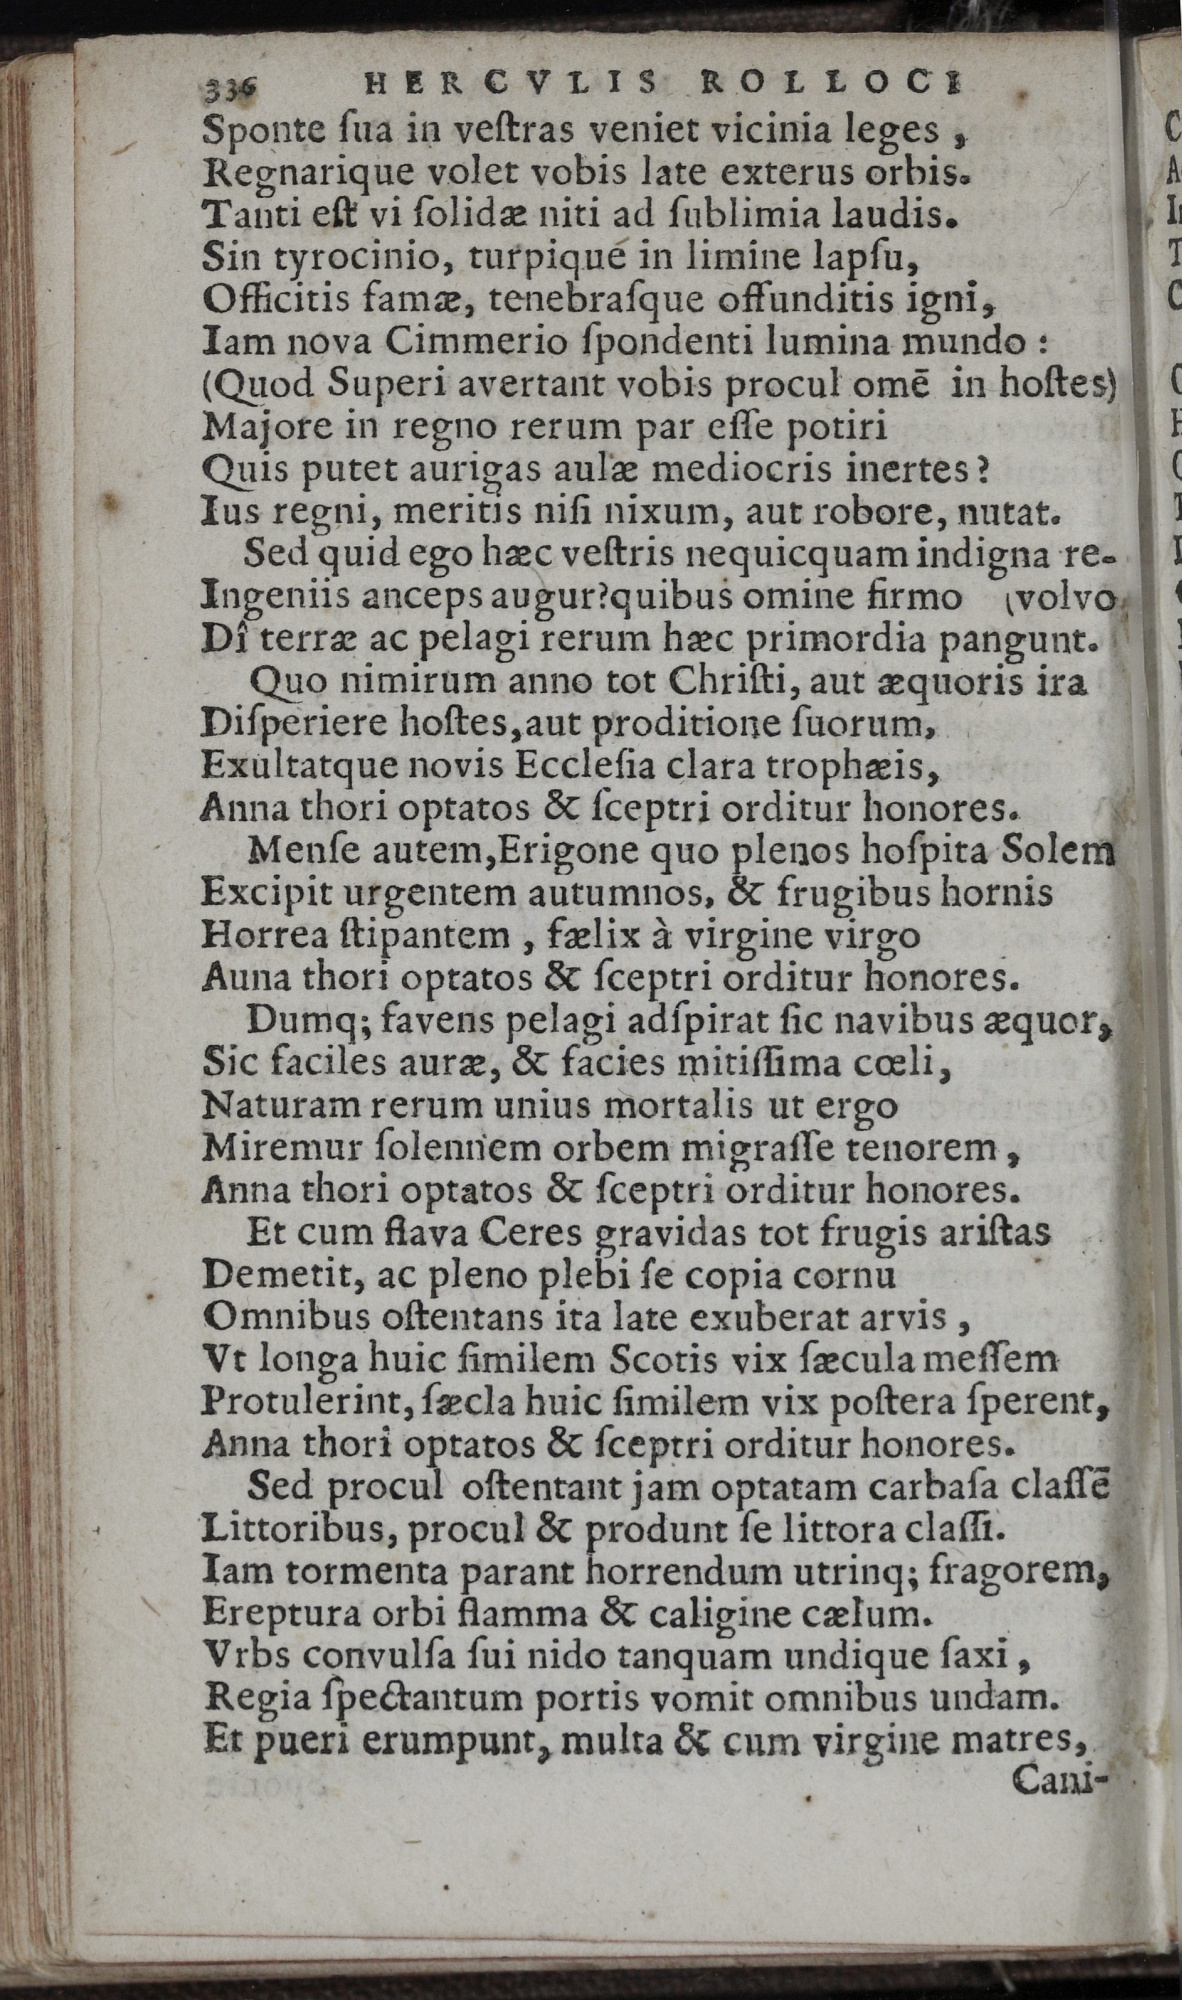 336 HERCVLIS ROLLOCI
Sponte ſua in veſtras veniet vicinia leges ,
Regnarique volet vobis late exterus orbis.
Tanti eſt vi ſolidæ niti ad ſublimia laudis.
Sin tyrocinio, turpique in limine lapſu,
Officitis famæ, tenebraſque offunditis igni,
Iam nova Cimmerio ſpondenti lumina mundo :
(Quod Superi avertant vobis procul omē in hoſtes)
Majore in regno rerum par eſſe potiri
Quis putet aurigas aulæ mediocris inertes?
Ius regni, meritis niſi nixum, aut robore, nutat.
Sed quid ego hæc veſtris nequicquam indigna re-
Ingeniis anceps augur?quibus omine firmo (volvo
Dî terræ ac pelagi rerum hæc primordia pangunt.
Quo nimirum anno tot Chriſti, aut æquoris ira
Diſperiere hoſtes,aut proditione ſuorum,
Exultatque novis Eccleſia clara trophæis,
Anna thori optatos & ſceptri orditur honores.
Menſe autem,Erigone quo plenos hoſpita Solem
Excipit urgentem autumnos, & frugibus hornis
Horrea ſtipantem , fælix à virgine virgo
Auna thori optatos & ſceptri orditur honores.
Dumq; favens pelagi adſpirat ſic navibus æquor,
Sic faciles auræ, & facies mitiſſima cœli,
Naturam rerum unius mortalis ut ergo
Miremur ſolennem orbem migraſſe tenorem ,
Anna thori optatos & ſceptri orditur honores.
Et cum flava Ceres gravidas tot frugis ariſtas
Demetit, ac pleno plebi ſe copia cornu
Omnibus oſtentans ita late exuberat arvis ,
Vt longa huic ſimilem Scotis vix ſæcula meſſem
Protulerint, ſæcla huic ſimilem vix poſtera ſperent,
Anna thori optatos & ſceptri orditur honores.
Sed procul oſtentant jam optatam carbaſa claſſē
Littoribus, procul & produnt ſe littora claſſi.
Iam tormenta parant horrendum utrinq; fragorem,
Ereptura orbi flamma & caligine cælum.
Vrbs convulſa ſui nido tanquam undique ſaxi ,
Regia ſpectantum portis vomit omnibus undam.
Et pueri erumpunt, multa & cum virgine matres,
Cani-